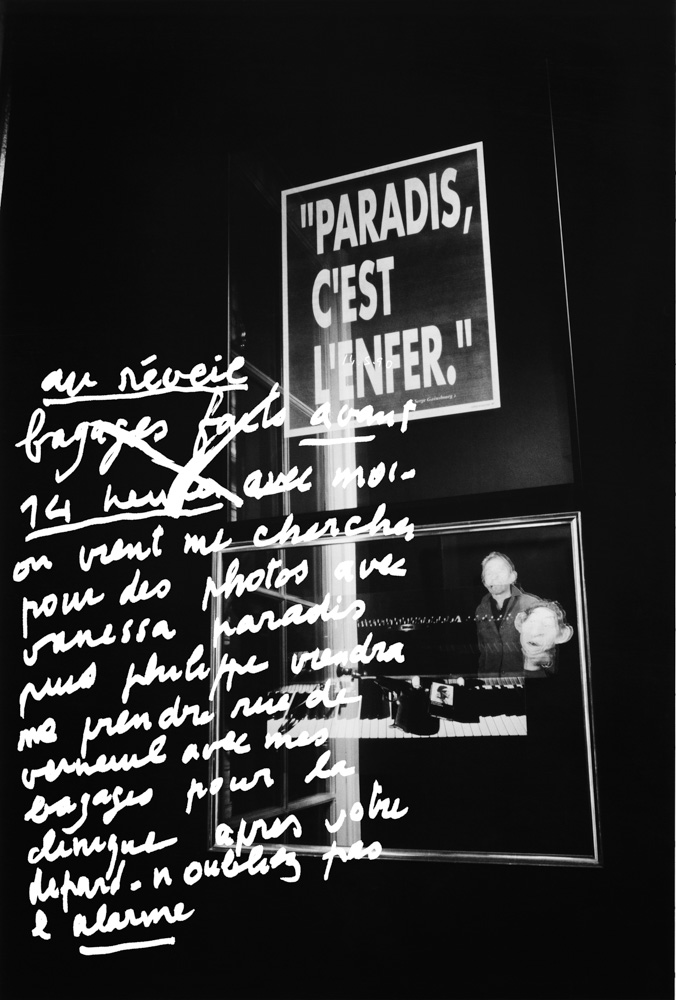 "PARADIS,
C'EST
L'ENFER."
Serge Gainsbourg
au réveil
bagages faits avant
14 heures avec moi-
on vient me chercher
pour des photos avec
vanessa paradis
puis philippe viendra
me prendre rue de
verneuil avec mes
bagages pour la
clinique après votre
départ - n oubliez pas
l alarme